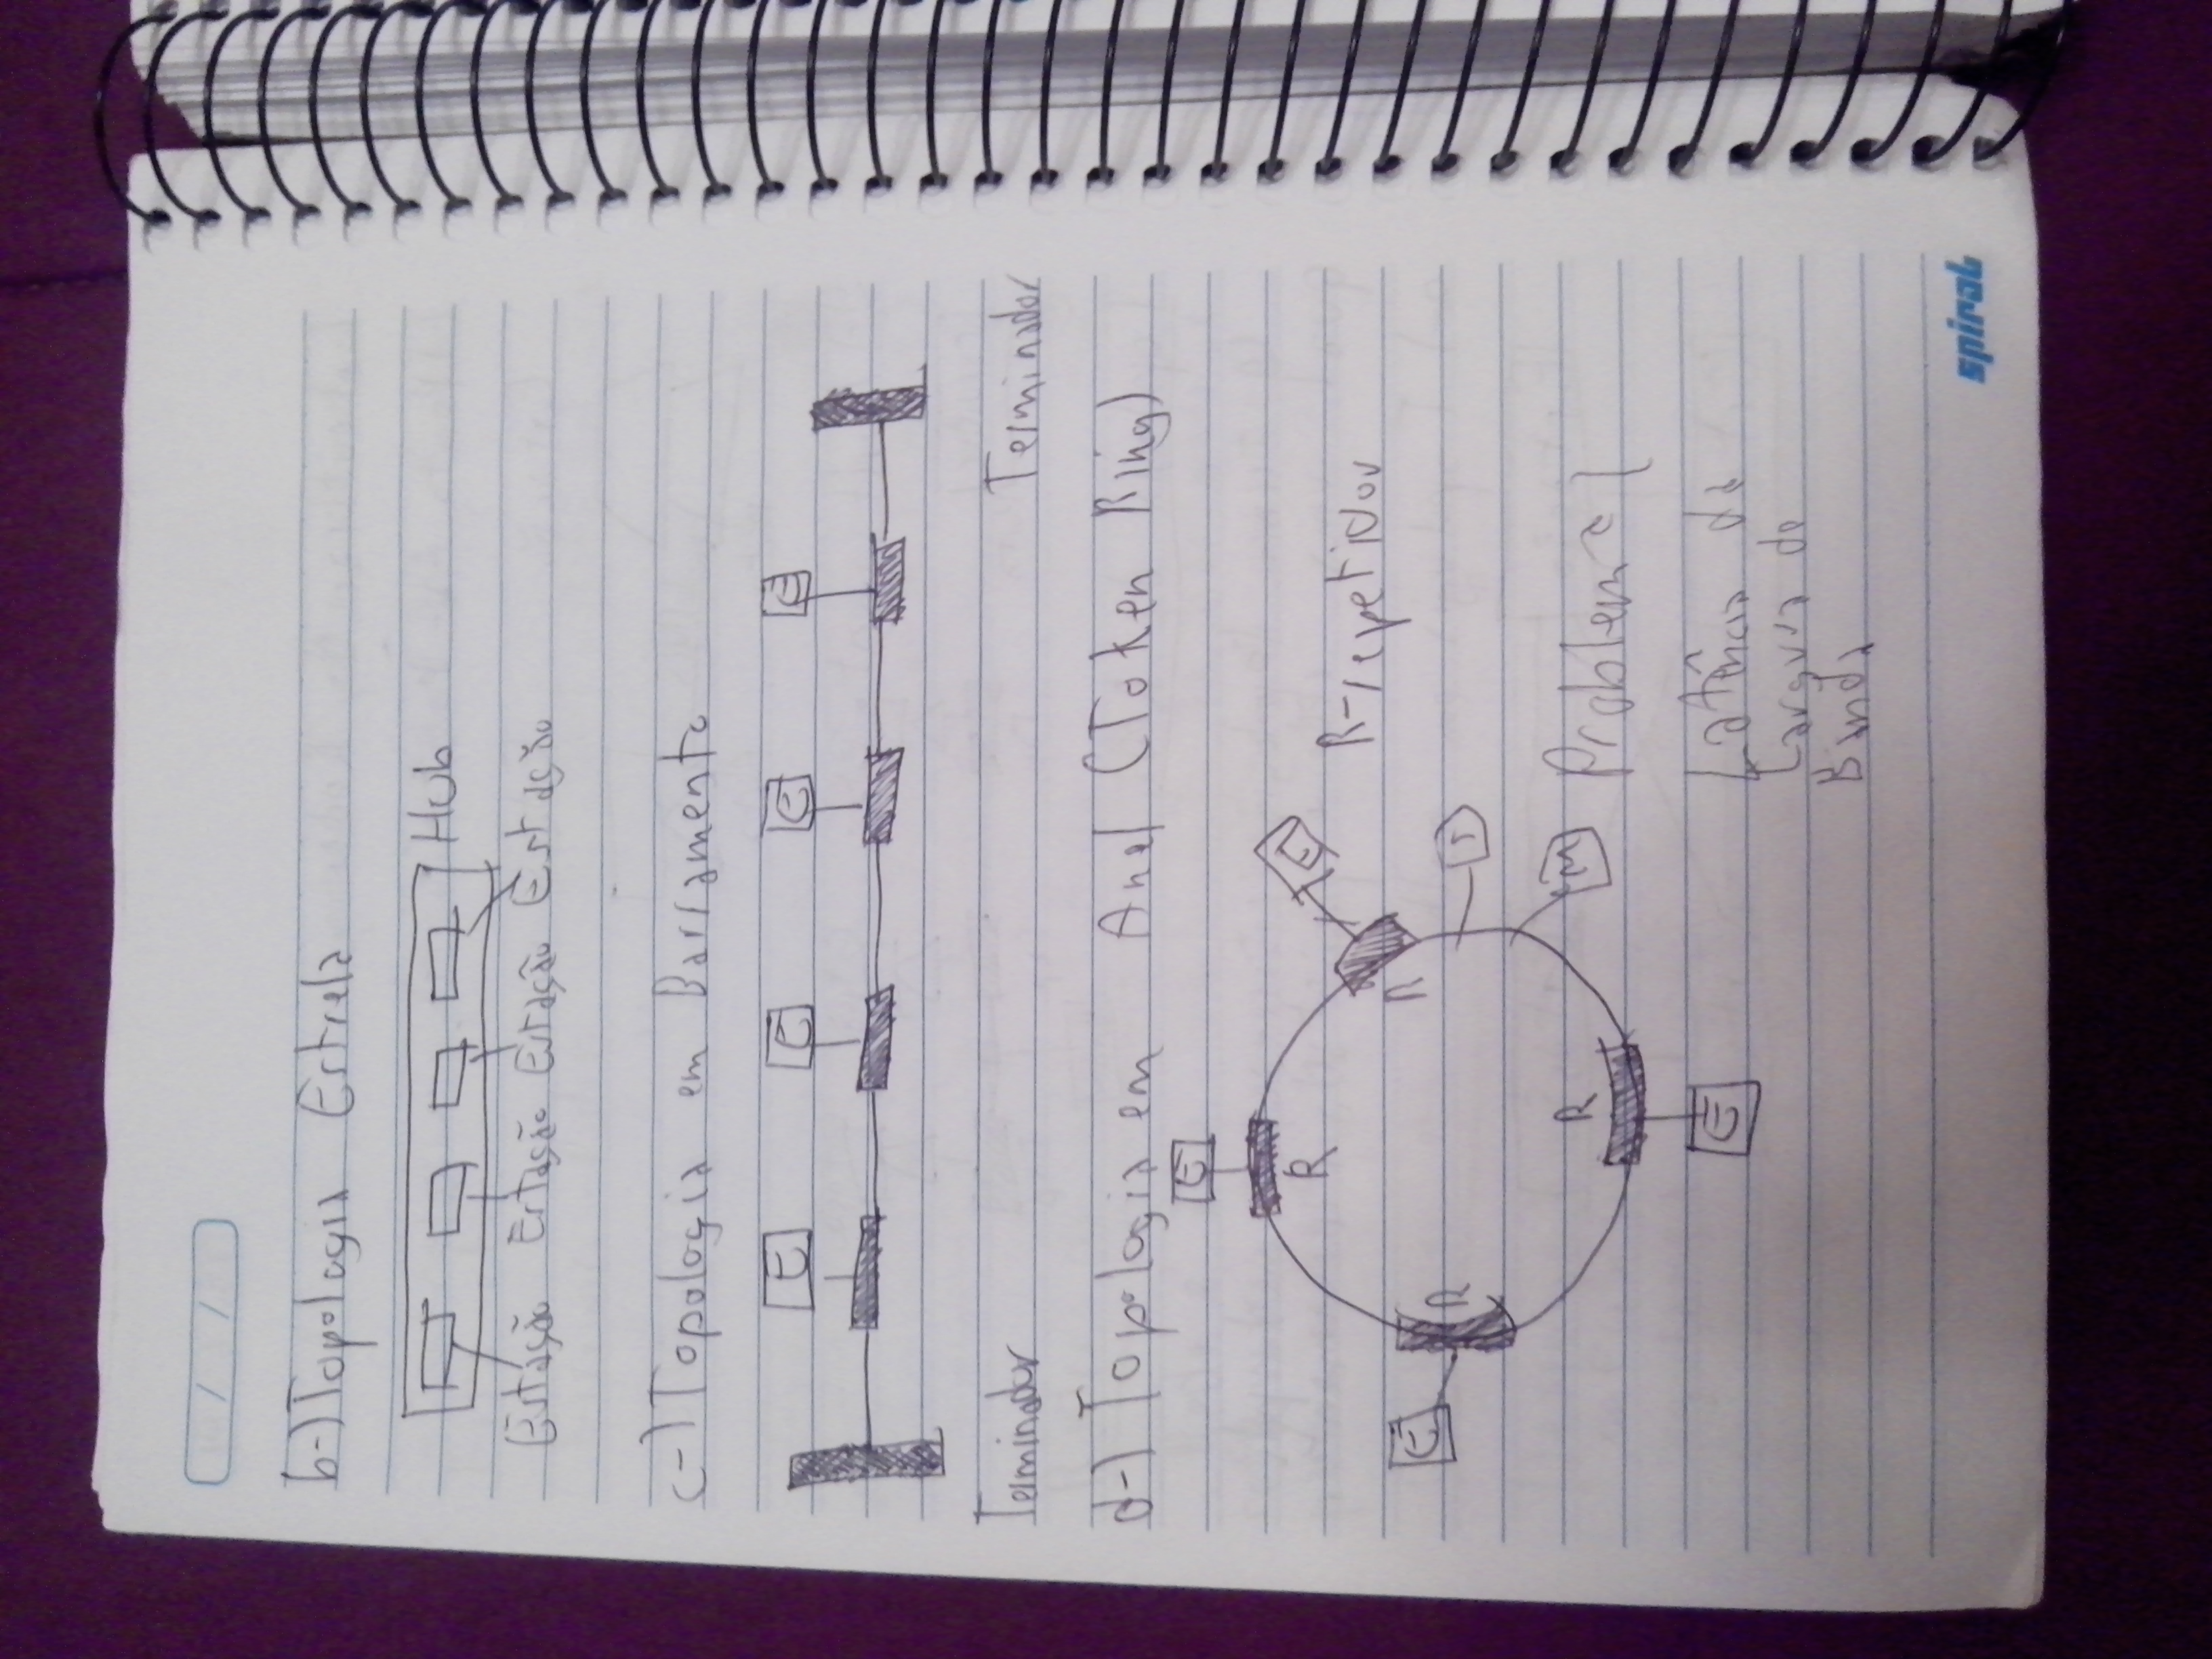 / /
b-) Topologia Estrela
Hub
Estação Estação Estação Estação
c-) Topologia em Barramento
E E E E
Terminador Terminador
d-) Topologia em Anel (Token Ring)
E
R
E
R-repetidor
R
E
R
R
M
Problema
E
Latência da
Largura de
Banda
spiral